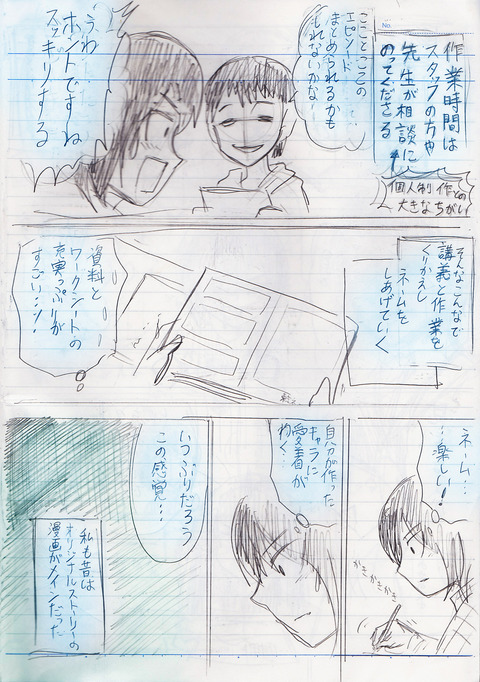 No.
作業時間は
スタッフの方や
先生が相談に
のってくださる
個人制作との
大きなちがい
こことここの
エピソード
まとめられるかも
しれないかな！
うわ
ホントですね
スッキリする
そんなこんなで
講義と作業を
くりかえし
ネームを
しあげていく
資料と
ワークシートの
充実っぷりが
すごい…！
ネーム…
…楽しい！
かきかきかき
自分が作った
キャラに
愛着が
わく…
いつぶりだろう
この感覚…
私も昔は
オリジナルストーリーの
漫画がメインだった